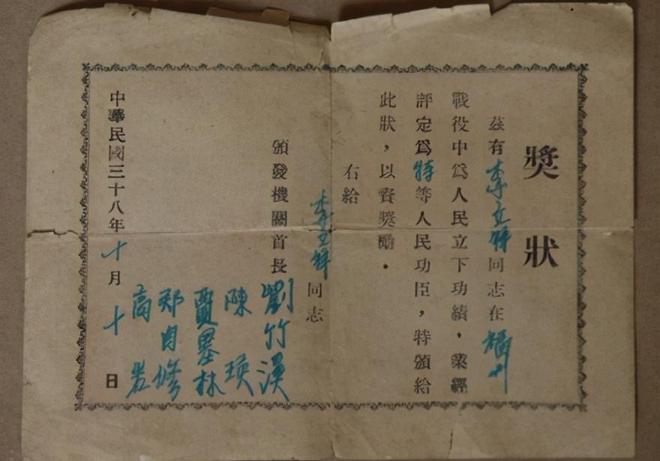 獎狀
茲有李立祥同志在福州
戰役中爲人民立下功績，業經
評定爲特等人民功臣，特頒給
此狀，以資獎勵。
右給
李立祥同志
頒發機關首長
劉竹溪
陳瑛
賈墨林
郑自修
高岩
中華民國三十八年十月十日